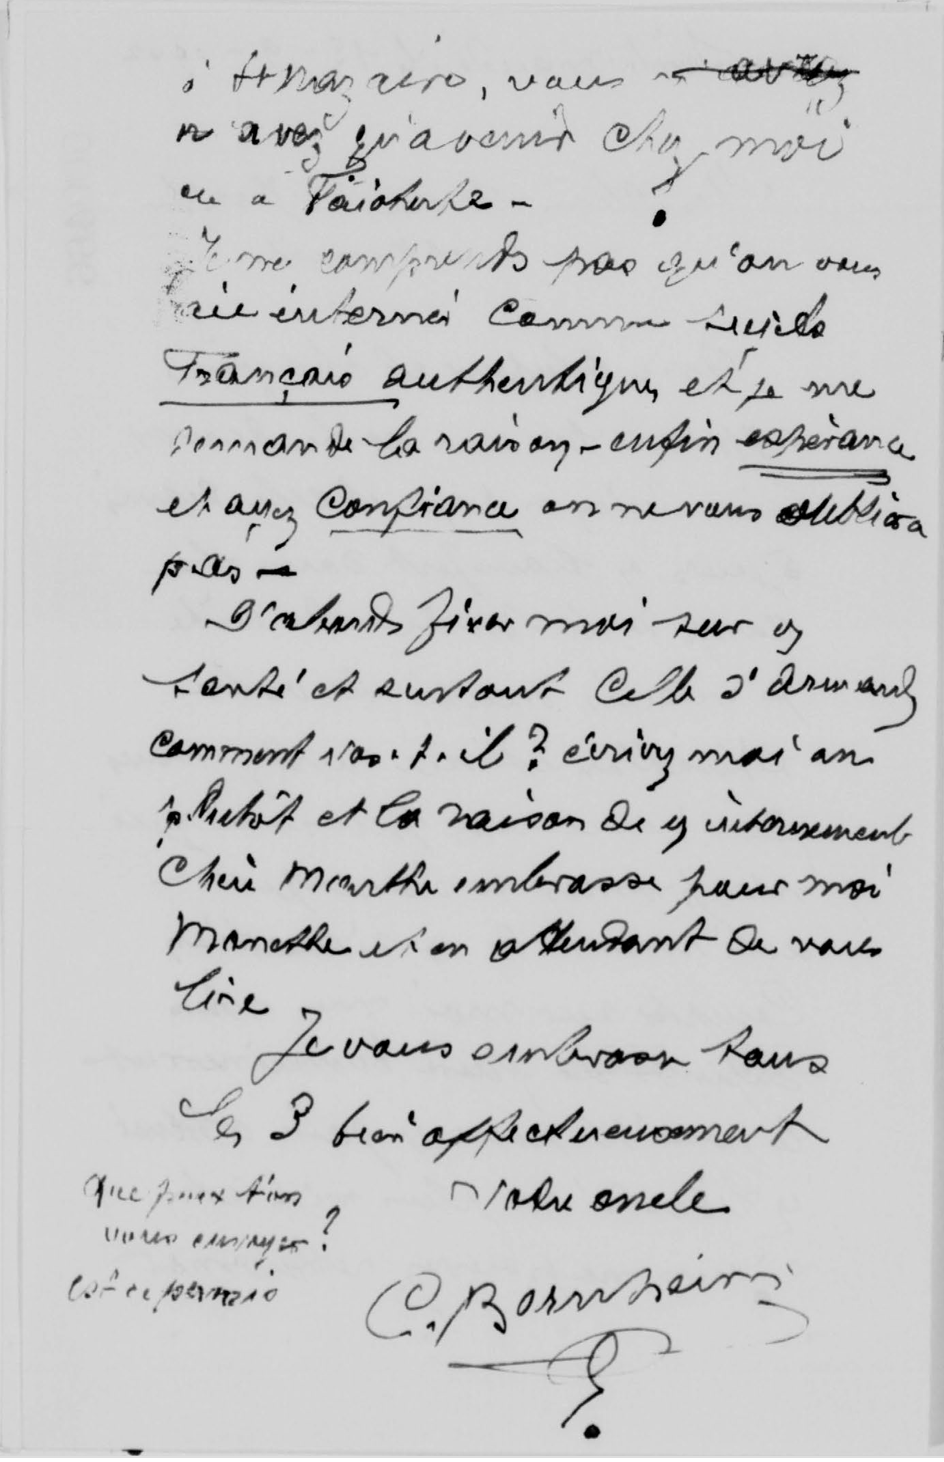 à St Nazaire, vous n'avez
n'avez qu'à venir chez moi
ou à
Je ne comprends pas qu'on vous
aie interné comme sujets
Français authentiques et je me
demande la raison - enfin espérance
et ayez confiance on ne vous oubliera
pas -
D'abords fixer moi sur
santé et surtout celle d'Armand
comment vas-t-il ? écrivez moi au
plutôt et la raison de internement
Chère Marthe embrasse pour moi
Manette et en attendant de vous
lire
Je vous embrasse tous
les 3 bien affectueusement
Votre oncle
Que peux t'on
vous envoyer ?
est ce permis
C. Bernheim